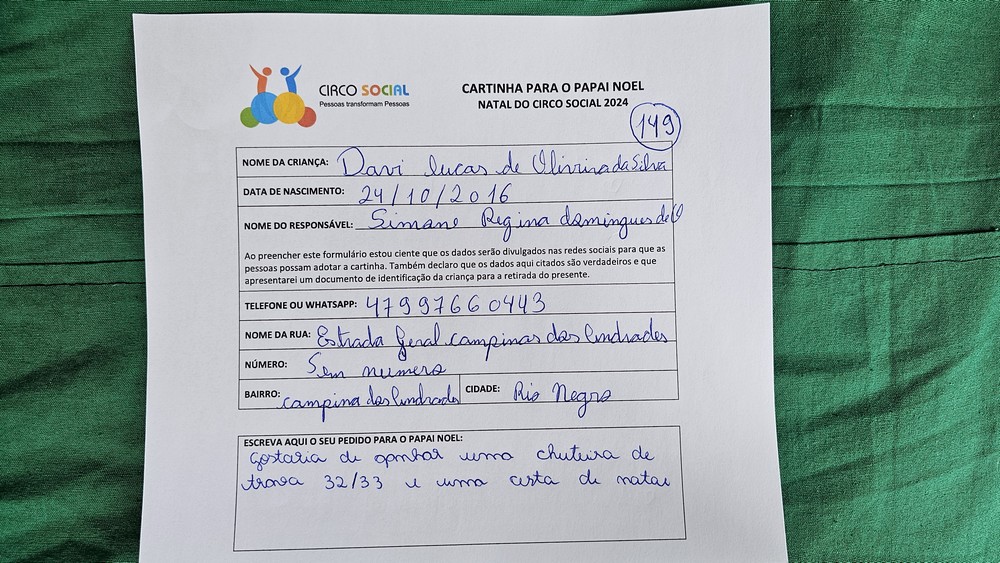 CIRCO SOCIAL
Pessoas transformam Pessoas
CARTINHA PARA O PAPAI NOEL
NATAL DO CIRCO SOCIAL 2024
149
NOME DA CRIANÇA: Davi Lucas de Olivirada Silva
DATA DE NASCIMENTO: 24/10/2016
NOME DO RESPONSÁVEL: Simane Regina domingues de O
Ao preencher este formulário estou ciente que os dados serão divulgados nas redes sociais para que as
pessoas possam adotar a cartinha. Também declaro que os dados aqui citados são verdadeiros e que
apresentarei um documento de identificação da criança para a retirada do presente.
TELEFONE OU WHATSAPP: 47997660443
NOME DA RUA: Estrada Geral campinas dos Andrades
NÚMERO: Sem numero
BAIRRO: campina dos Andrades CIDADE: Rio Negro
ESCREVA AQUI O SEU PEDIDO PARA O PAPAI NOEL:
Gostaria de uma chuteira de
trava 32/33 e uma cesta de natal